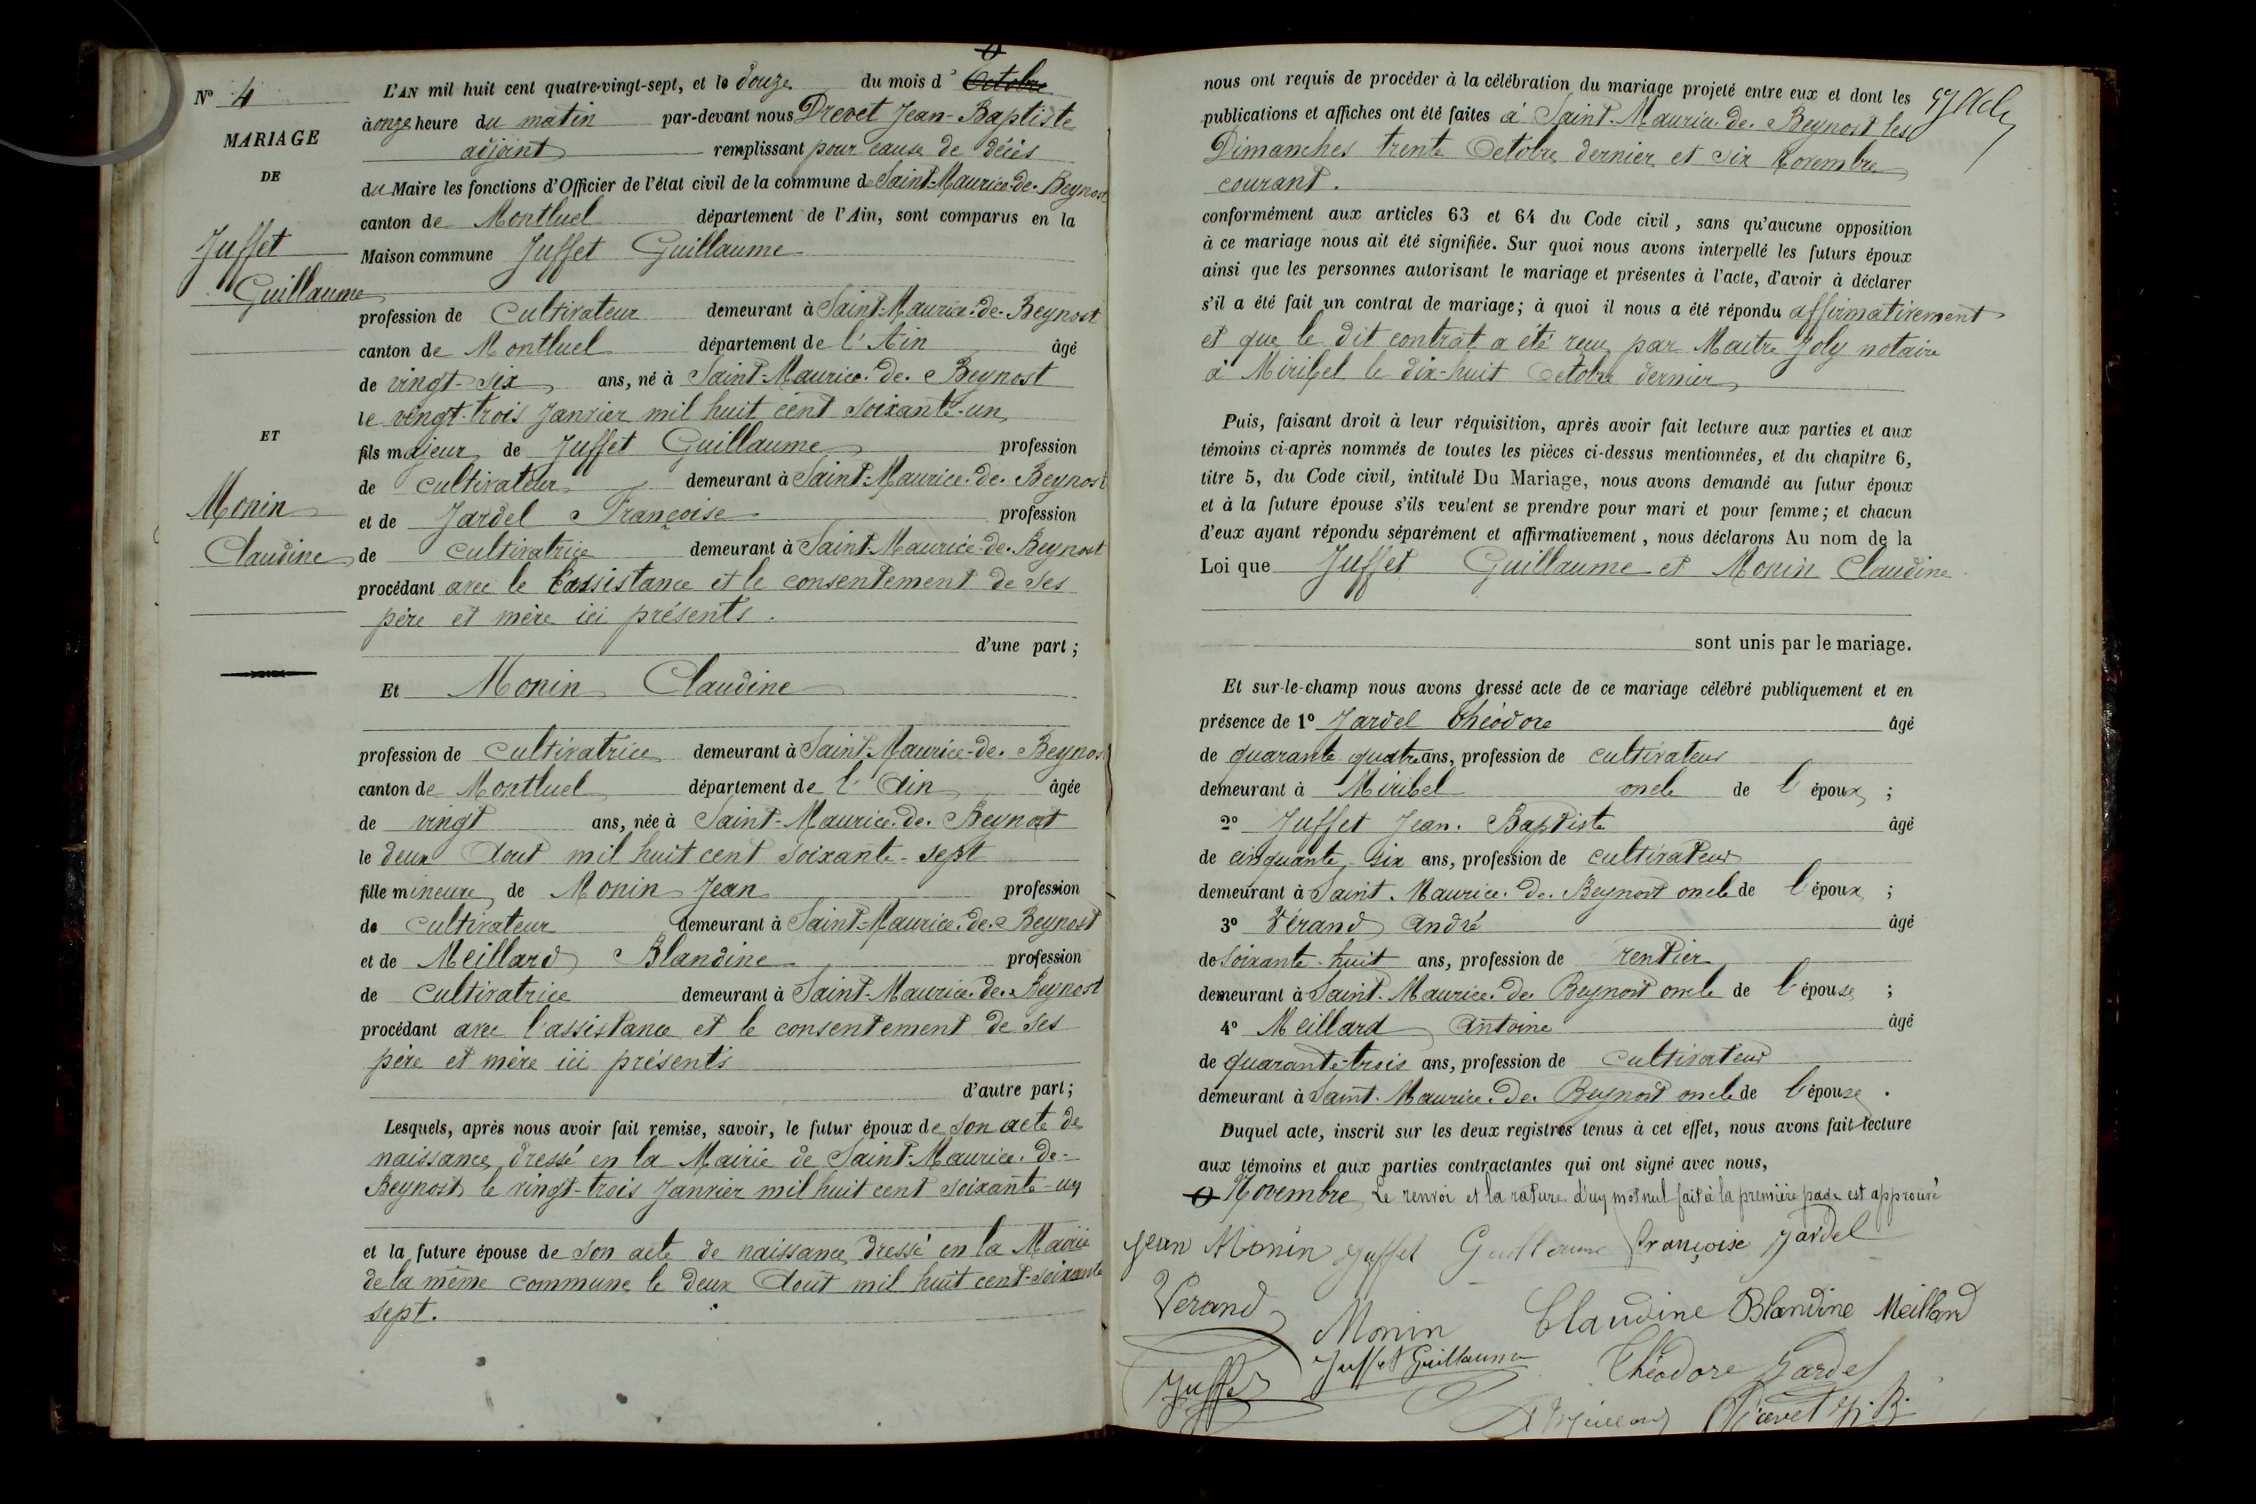 Nº 4
MARIAGE
DE
Juffet
Guillaume
ET
Monin
Claudine
L'AN mil huit cent quatre-vingt-sept, et le douze du mois d' Octobre
à onze heure du matin par-devant nous Drevet Jean-Baptiste
adjoint remplissant pour cause de décès
du Maire les fonctions d'Officier de l'état civil de la commune de Saint-Maurice-de-Beynost
canton de Montluel département de l'Ain, sont comparus en la
Maison commune Juffet Guillaume
profession de Cultivateur demeurant à Saint-Maurice-de-Beynost
canton de Montluel département de l'Ain âgé
de vingt-six ans, né à Saint-Maurice-de-Beynost
le vingt-trois Janvier mil huit cent soixante-un
fils majeur de Juffet Guillaume profession
de cultivateur demeurant à Saint-Maurice-de-Beynost
et de Jardel Françoise profession
de cultivatrice demeurant à Saint-Maurice-de-Beynost
procédant avec le l'assistance et le consentement de ses
père et mère ici présents.
d'une part ;
Et Monin Claudine
profession de cultivatrice demeurant à Saint-Maurice-de-Beynost
canton de Montluel département de l'Ain âgée
de vingt ans, née à Saint-Maurice-de-Beynost
le deux Aout mil huit cent soixante-sept
fille mineure de Monin Jean profession
de cultivateur demeurant à Saint-Maurice-de-Beynost
et de Meillard Blandine profession
de cultivatrice demeurant à Saint-Maurice-de-Beynost
procédant avec l'assistance et le consentement de ses
père et mère ici présents
d'autre part ;
Lesquels, après nous avoir fait remise, savoir, le futur époux de son acte de
naissance dressé en la Mairie de Saint-Maurice-de-
Beynost le vingt-trois Janvier mil huit cent soixante-un
et la future épouse de son acte de naissance dressé en la Mairie
de la même commune le deux Aout mil huit cent-soixante
sept.
nous ont requis de procéder à la célébration du mariage projeté entre eux et dont les
publications et affiches ont été faites à Saint-Maurice-de-Beynost les
Dimanches trente Octobre dernier et six Novembre
courant.
conformément aux articles 63 et 64 du Code civil, sans qu'aucune opposition
à ce mariage nous ait été signifiée. Sur quoi nous avons interpellé les futurs époux
ainsi que les personnes autorisant le mariage et présentes à l'acte, d'avoir à déclarer
s'il a été fait un contrat de mariage ; à quoi il nous a été répondu affirmativement
et que le dit contrat a été reçu par Maitre Joly notaire
à Miribel le dix-huit Octobre dernier
Puis, faisant droit à leur réquisition, après avoir fait lecture aux parties et aux
témoins ci-après nommés de toutes les pièces ci-dessus mentionnées, et du chapitre 6,
titre 5, du Code civil, intitulé Du Mariage, nous avons demandé au futur époux
et à la future épouse s'ils veulent se prendre pour mari et pour femme ; et chacun
d'eux ayant répondu séparément et affirmativement, nous déclarons Au nom de la
Loi que Juffet Guillaume et Monin Claudine
sont unis par le mariage.
Et sur-le-champ nous avons dressé acte de ce mariage célébré publiquement et en
présence de 1º Jardel Théodore âgé
de quarante quatre ans, profession de cultivateur
demeurant à Miribel oncle de l'époux ;
2º Juffet Jean-Baptiste âgé
de cinquante six ans, profession de cultivateur
demeurant à Saint-Maurice-de-Beynost oncle de l'époux ;
3º Vérand André âgé
de soixante-huit ans, profession de rentier
demeurant à Saint-Maurice-de-Beynost oncle de l'épouse ;
4º Meillard Antoine âgé
de quarante-trois ans, profession de cultivateur
demeurant à Saint-Maurice-de-Beynost oncle de l'épouse.
Duquel acte, inscrit sur les deux registres tenus à cet effet, nous avons fait lecture
aux témoins et aux parties contractantes qui ont signé avec nous,
Novembre Le renvoi et la rature d'un mot nul fait à la première page est approuvé
Jean Monin Juffet Guillaume Françoise Jardel
Verand Monin Claudine Blandine Meillard
Juffet Juffet Guillaume Théodore Jardel
A Meillard Drevet J. B.